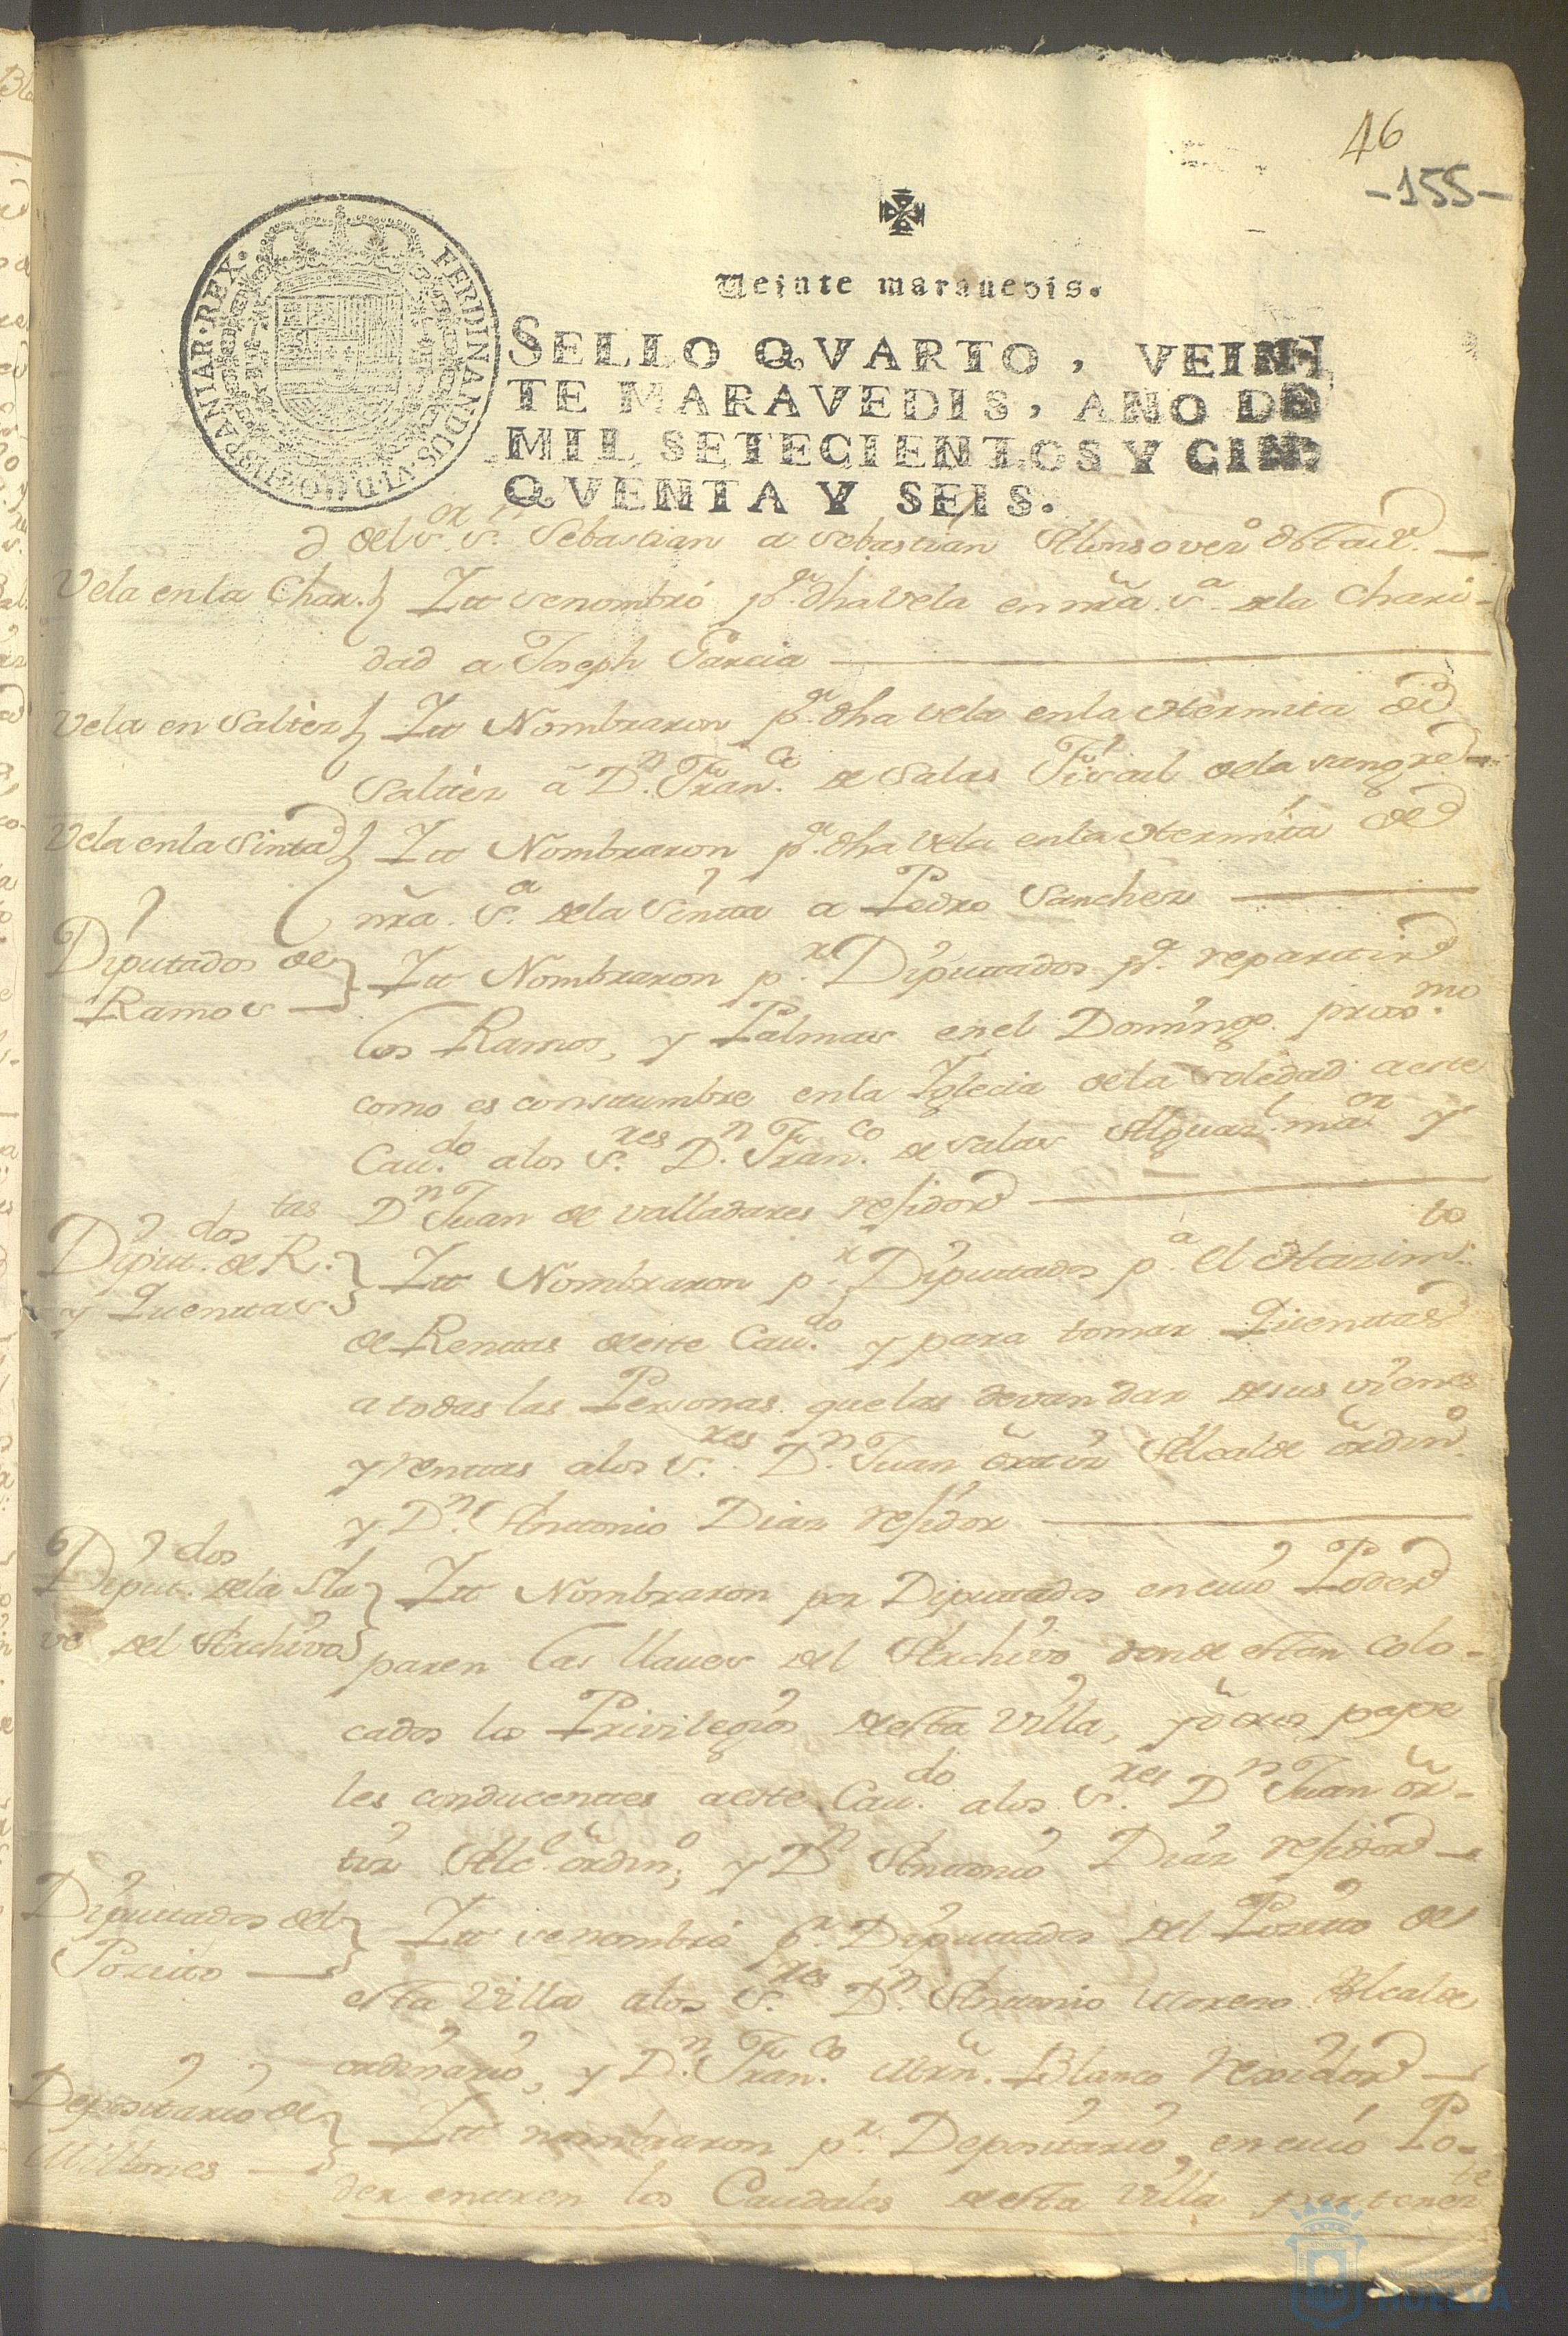 46
-155-
FERDINANDUS·VI·D·G·HISPANIAR·REX·
Veinte maravedis.
SELLO QVARTO, VEIN-
TE MARAVEDIS, AÑO DE
MIL SETECIENTOS Y CIN-
QVENTA Y SEIS.
del S.or S.n Sebastian a Sebastian Alonso
Vela en la Char.d Itt se nombró p.a dha Vela en nrã S.a de la Chari-
dad a Joseph Garcia
Vela en Saltés Itt Nombraron p.a dha vela en la Hermita de
Saltés â D.n Fran.co de Salas Fiscal de la sangre
Vela en la Sinta Itt Nombraron p.a dha Vela en la Hermita de
nrã S.a de la Sinta a Pedro Sanchez
Diputados de
Ramos
Itt Nombraron p.r Diputados p.a repartir
los Ramos, y Palmas en el Domingo prox.mo
como es constumbre en la Iglecia de la Soledad a este
Cau.do a los S.res D.n Fran.co de Salas Alguaz.l ma.or y
D.n Juan de Valladares residor
Diput.dos de R.tas
y Quentas
Itt Nombraron p.r Diputados p.a el Hazim.to
de Rentas de este Cau.do y para tomar Quentas
a todas las Personas que las devan dar de sus vienes
y rentas a los S.res D.n Juan õrtiz Alcalde õrdin.o
y D.n Antonio Diaz residor
Diput.dos de la Lla
ve del Archivo
Itt Nombraron por Diputados en cuio Poder
paren las llaues del Archivo donde estan colo-
cados los Privilegios de esta Villa, y õtros pape
les conducentes a este Cau.do a los S.res D.n Juan õr-
tiz Alc.l õrdin.o, y D.n Antonio Diaz residor
Diputados del
Pocito
Itt se nombró p.r Diputados del Pocito de
esta Villa a los S.res D.n Antonio Moreno Alcalde
ordinario, y D.n Fran.co Mrñ. Blanco Rexidor
Depositario de
Millones
Itt nombraron p.r Depositario, en cuio Po-
der entren los Caudales de esta Villa pertenez.te
HUELVA